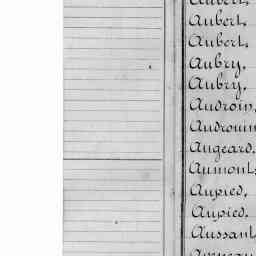 Aubert,
Aubert,
Aubert,
Aubry,
Aubry,
Audroin,
Audrouin
Angeard,
Aumont,
Aupied,
Aupied,
Aussant